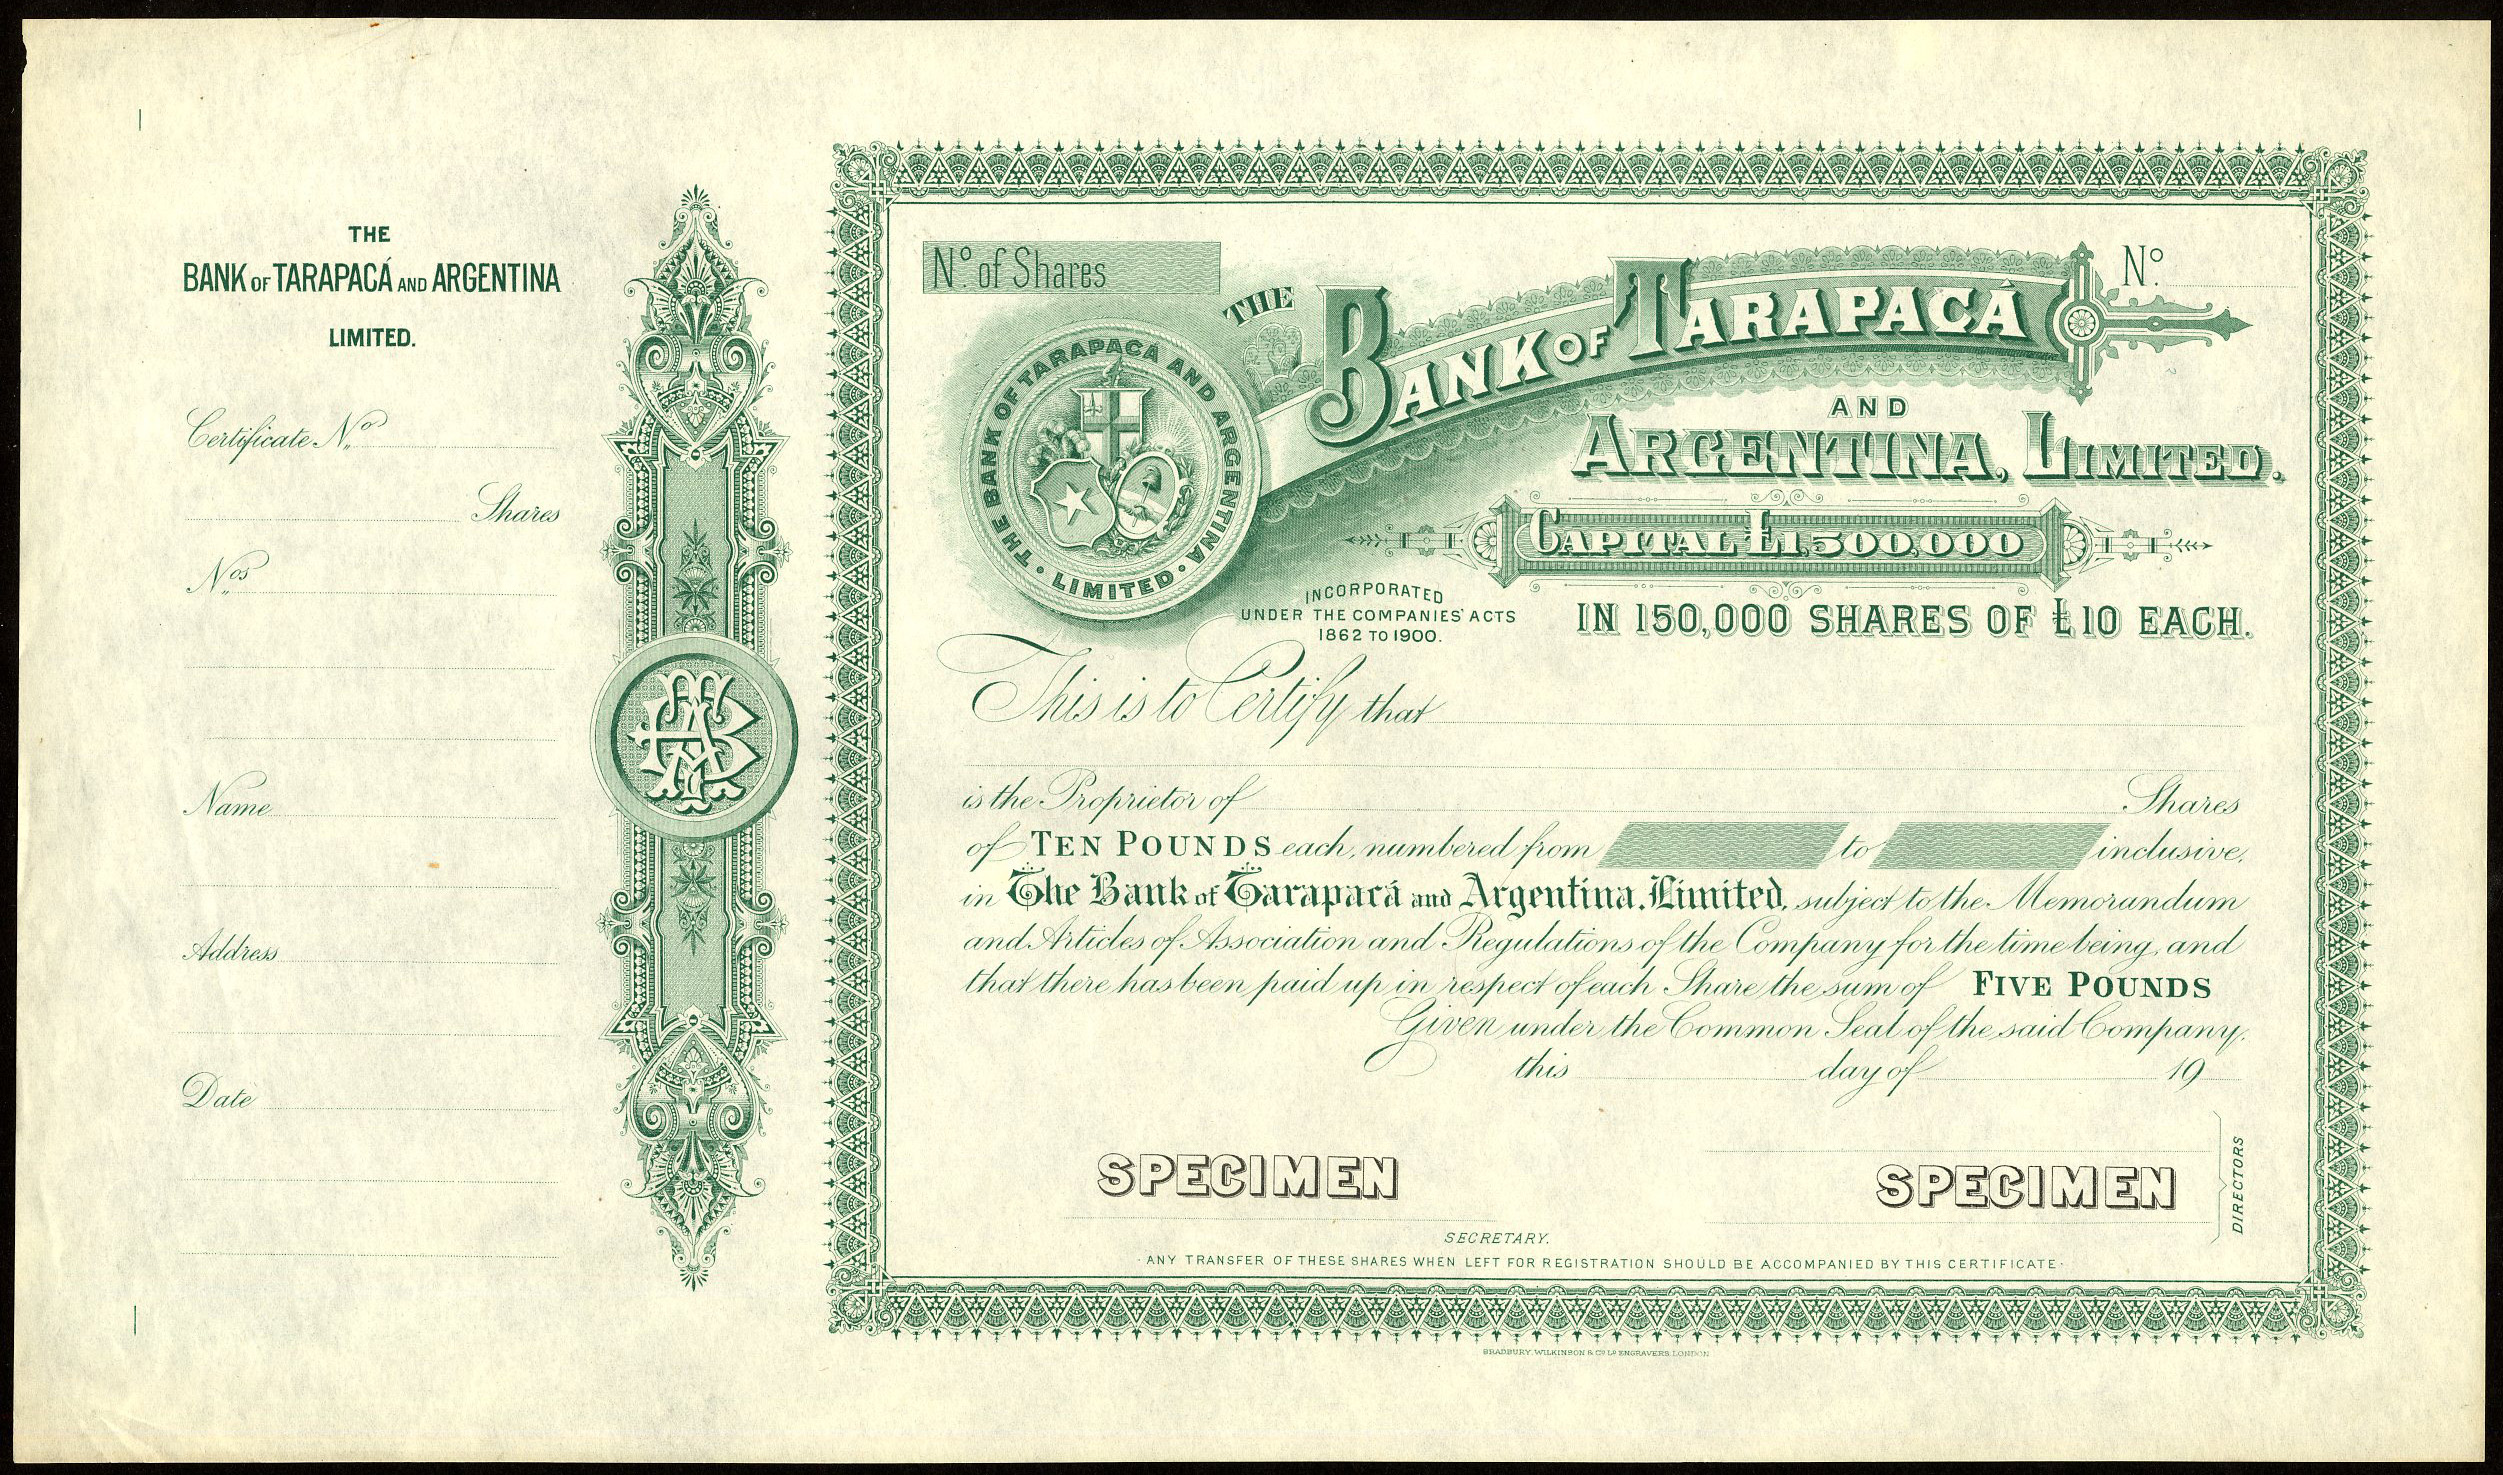 THE
BANK OF TARAPACÁ AND ARGENTINA
LIMITED.
Certificate No.
Shares
Nos.
Name
Address
Date
No. of Shares
No.
THE BANK OF TARAPACÁ
AND
ARGENTINA, LIMITED.
THE BANK OF TARAPACÁ AND ARGENTINA · LIMITED ·
CAPITAL £1,500,000
INCORPORATED
UNDER THE COMPANIES' ACTS
1862 TO 1900.
IN 150,000 SHARES OF £10 EACH.
This is to Certify that
is the Proprietor of Shares
of TEN POUNDS each, numbered from to inclusive,
in The Bank of Tarapacá and Argentina, Limited, subject to the Memorandum
and Articles of Association and Regulations of the Company for the time being, and
that there has been paid up in respect of each Share the sum of FIVE POUNDS
Given under the Common Seal of the said Company,
this day of 19
SPECIMEN
SPECIMEN
DIRECTORS
SECRETARY.
· ANY TRANSFER OF THESE SHARES WHEN LEFT FOR REGISTRATION SHOULD BE ACCOMPANIED BY THIS CERTIFICATE ·
BRADBURY, WILKINSON & Co. Ld. ENGRAVERS, LONDON